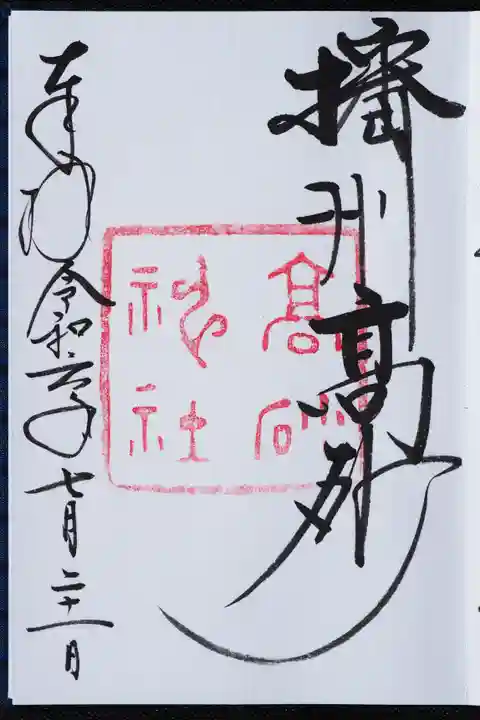 播州高砂
高砂
神社
奉拝
令和二年七月二十一日